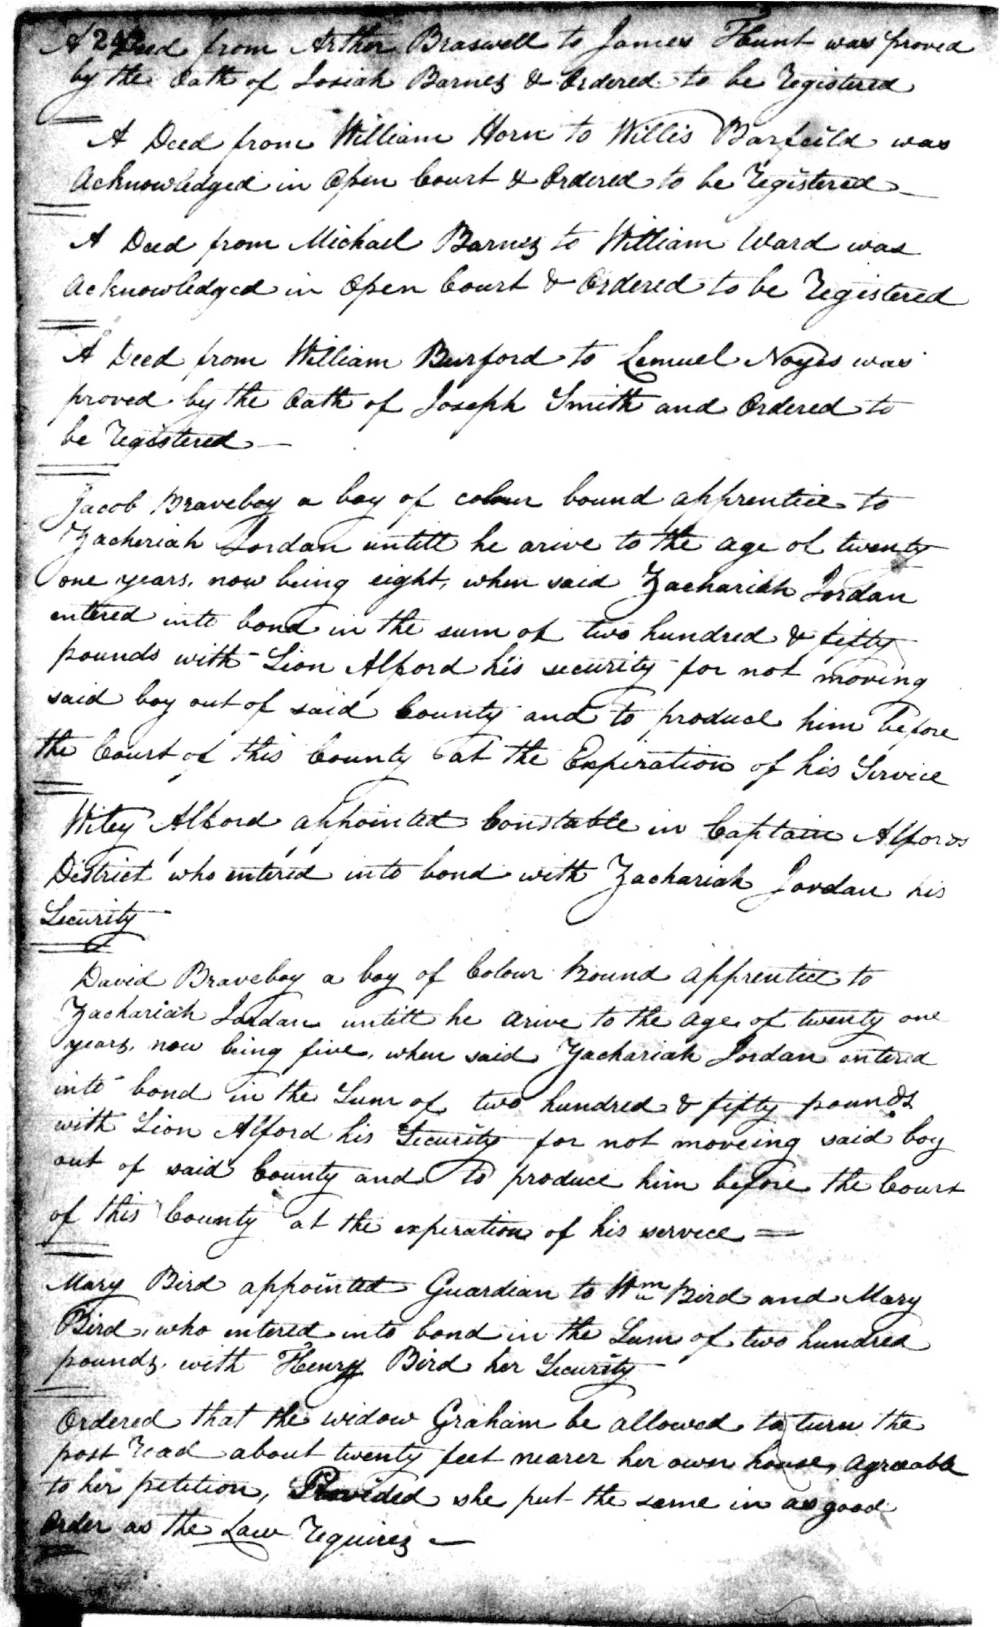 A Deed from Arther Braswell to James Hunt was proved
by the Oath of Josiah Barnes & Ordered to be Registered
A Deed from William Horn to Willis Barfeild was
Acknowledged in Open Court & Ordered to be Registered
A Deed from Michael Barnes to William Ward was
Acknowledged in Open Court & Ordered to be Registered
A Deed from William Burford to Lemuel Noyes was
proved by the Oath of Joseph Smith and Ordered to
be Registered
Jacob Braveboy a boy of colour bound apprentice to
Zacheriah Jordan untill he arive to the age of twenty
one years, now being eight, when said Zachariah Jordan
entered into bond in the sum of two hundred & fifty
pounds with Lion Alford his security for not moving
said boy out of said County and to produce him before
the Court of this County at the Expiration of his Service
Witey Alford appointed Constable in Captain Alfords
District who entered into bond with Zachariah Jordan his
Security
David Braveboy a boy of Colour Bound apprentice to
Zachariah Jordan untill he arive to the age of twenty one
years, now being five, when said Zachariah Jordan entered
into bond in the Sum of two hundred & fifty pounds
with Lion Alford his Security for not moveing said boy
out of said County and to produce him before the Court
of this County at the expiration of his service =
Mary Bird appointed Guardian to Wm Bird and Mary
Bird, who entered into bond in the Sum of two hundred
pounds, with Henry Bird her Security
Ordered that the widow Graham be allowed to turn the
post Road about twenty feet nearer her own house, agreeable
to her petition, Provided she put the same in as good
Order as the Law Requires